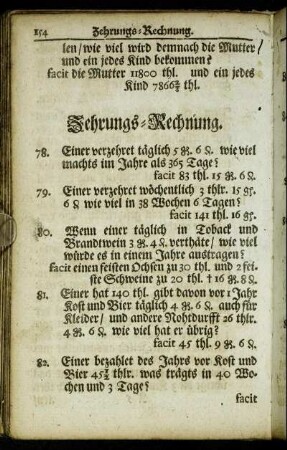 154 Zehrungs-Rechnung.
len/ wie viel wird demnach die Mutter/
und ein jedes Kind bekommen?
facit die Mutter 11800 thl. und ein jedes
Kind 7866⅔ thl.
Zehrungs-Rechnung.
78. Einer verzehret täglich 5 gr. 6 ₰. wie viel
machts im Jahre als 365 Tage?
facit 83 thl. 15 gr. 6 ₰.
79. Einer verzehret wöchentlich 3 thlr. 15 gr.
6 ₰ wie viel in 38 Wochen 6 Tagen?
facit 141 thl. 16 gr.
80. Wenn einer täglich in Toback und
Brandtwein 3 gr. 4 ₰. verthäte/ wie viel
würde es in einem Jahre austragen?
facit einen feisten Ochsen zu 30 thl. und 2 fei-
ste Schweine zu 20 thl. † 16 gr. 8 ₰.
81. Einer hat 140 thl. gibt davon vor 1 Jahr
Kost und Bier täglich 4 gr. 6 ₰. auch für
Kleider/ und andere Nohtdurfft 26 thlr.
4 gr. 6 ₰. wie viel hat er übrig?
facit 45 thl. 9 gr. 6 ₰.
82. Einer bezahlet des Jahrs vor Kost und
Bier 45¾ thlr. was trägts in 40 Wo-
chen und 3 Tage?
facit